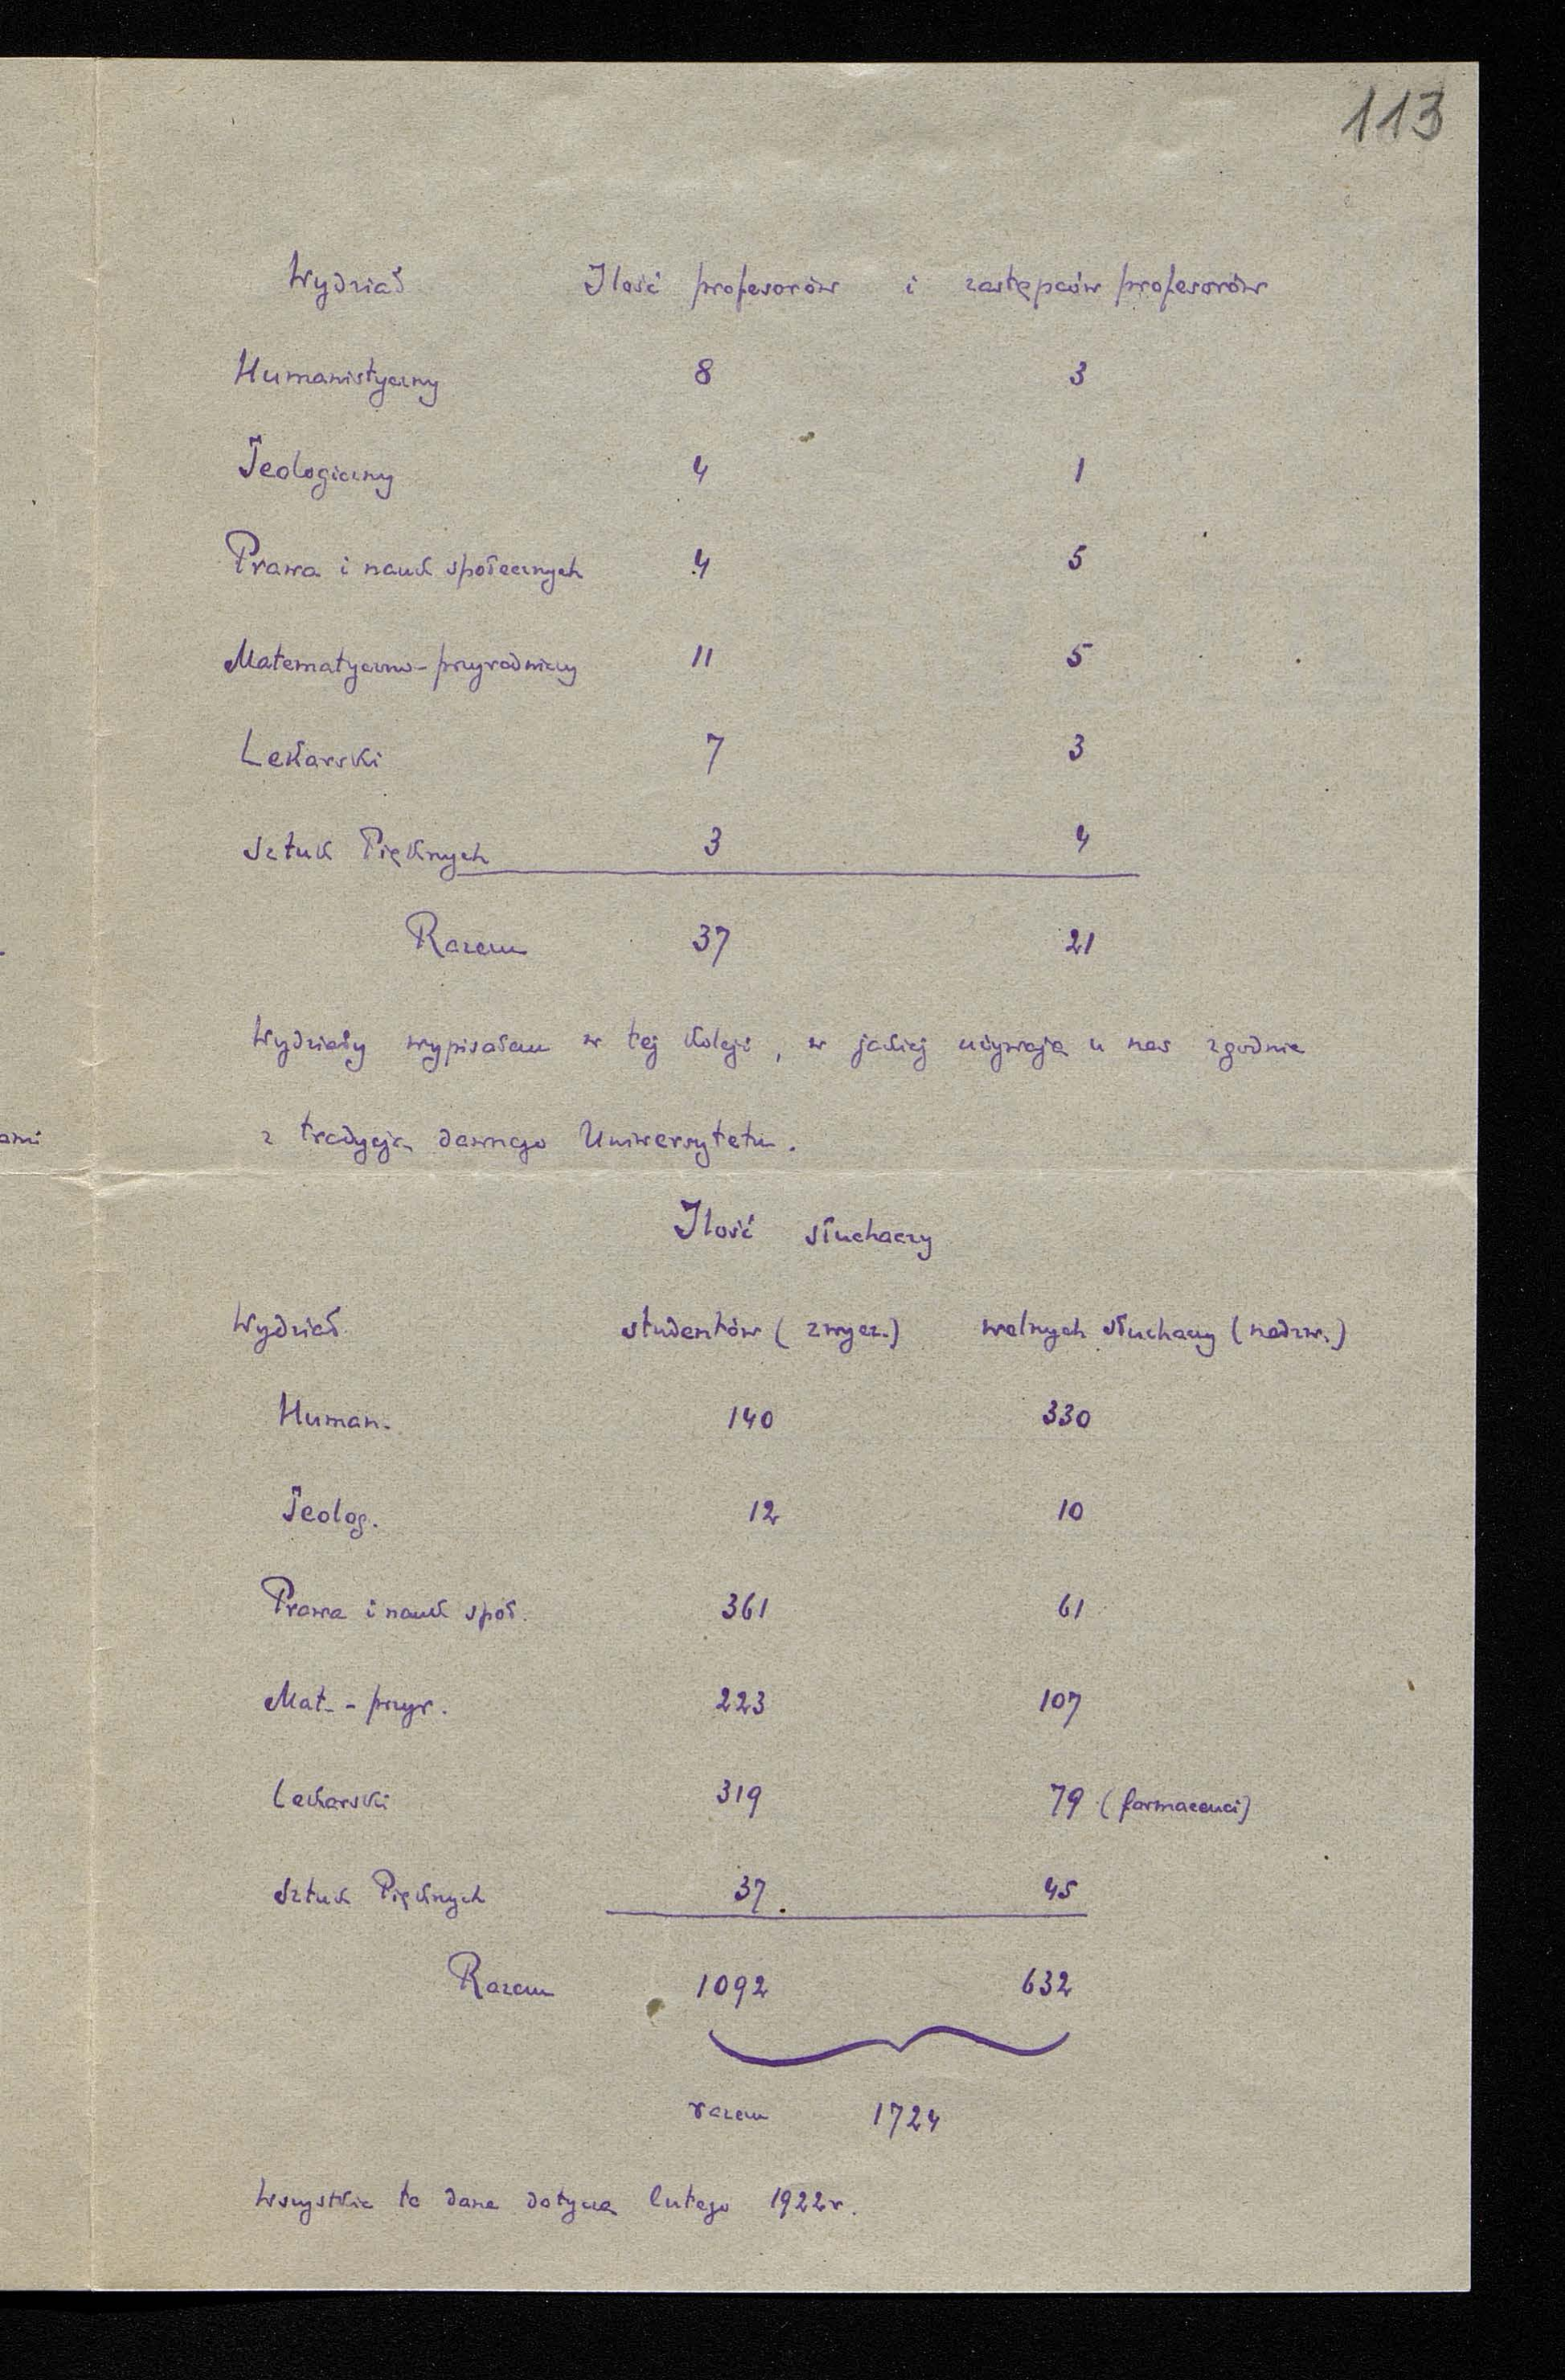 113
Wydział Ilość profesorów i zastępców profesorów
Humanistyczny 8 3
Teologiczny 4 1
Prawa i nauk społecznych 4 5
Matematyczno-przyrodniczy 11 5
Lekarski 7 3
Sztuk Pięknych 3 4
Razem 37 21
Wydziały wypisałem w tej koleji, w jakiej używają u nas zgodnie
ami
z tradycją dawnego Uniwersytetu.
Ilość słuchaczy
Wydział studentów (zwycz.) wolnych słuchaczy (nadzw.)
Human. 140 330
Teolog. 12 10
Prawa i nauk społ. 361 61
Mat.-przyr. 223 107
Lekarski 319 79 (farmaceuci)
Sztuk Pięknych 37. 45
Razem 1092 632
razem 1724
Wszystkie te dane dotyczą lutego 1922r.